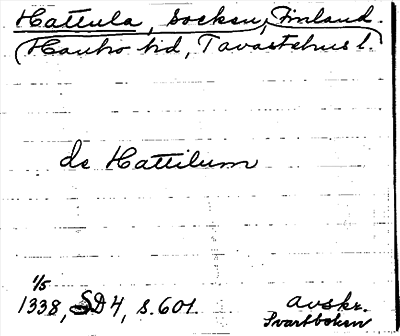 Hattula, socken, Finland.
(Hauho hd, Tavastehus l.)
de Hattilum
1/5
1338, SD 4, s. 601.
avskr.
Svartboken